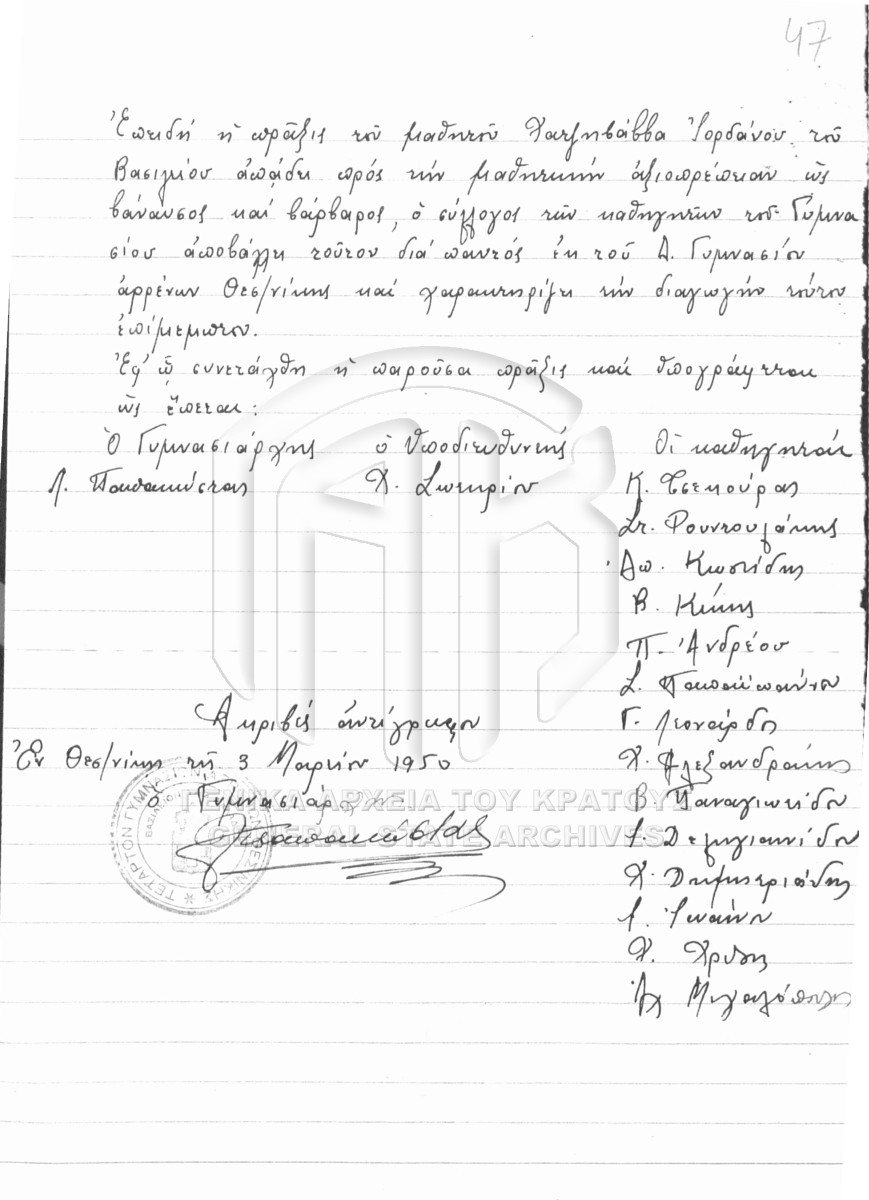 47
Ἐπειδή ἡ πρᾶξις τοῦ μαθητοῦ Χατζησάββα Ἰορδάνου τοῦ
Βασιλείου ἀπᾴδει πρός τήν μαθητικήν ἀξιοπρέπειαν ὡς
βάναυσος καί βάρβαρος, ὁ σύλλογος τῶν καθηγητῶν τοῦ Γυμνα
σίου ἀποβάλλει τοῦτον διά παντός ἐκ τοῦ Δ. Γυμνασίου
ἀρρένων Θεσ/νίκης καί χαρακτηρίζει τήν διαγωγήν τούτου
ἐπίμεμπτον.
Ἐφ' ᾧ συνετάχθη ἡ παροῦσα πρᾶξις καί ὑπογράφεται
ὡς ἕπεται:
Ὁ Γυμνασιάρχης ὁ Ὑποδιευθυντής Οἱ καθηγηταί
Λ. Παπακώστας Χ. Σωτηρίου Κ. Τσεκούρας
Στ. Φουντουλάκης
Ἀπ. Κωστίδης
Β. Κίκης
Π. Ἀνδρέου
Σ. Παπαϊωάννου
Γ. Λεονάρδος
Χ. Ἀλεξανδράκης
Β. Παναγιωτίδου
Δεληγιαννίδου
Χ. Δημητριάδης
Ἰωάννου
Χ. Χρυσης
Ἀχ Μιχαλόπουλος
Ἀκριβές ἀντίγραφον
Ἐν Θεσ/νίκῃ τῇ 3 Μαρτίου 1950
ὁ Γυμνασιάρχης
Παπακώστας
ΤΕΤΑΡΤΟΝ ΓΥΜΝΑΣΙΟΝ
ΓΕΝΙΚΑ ΑΡΧΕΙΑ ΤΟΥ ΚΡΑΤΟΥΣ
GENERAL STATE ARCHIVES